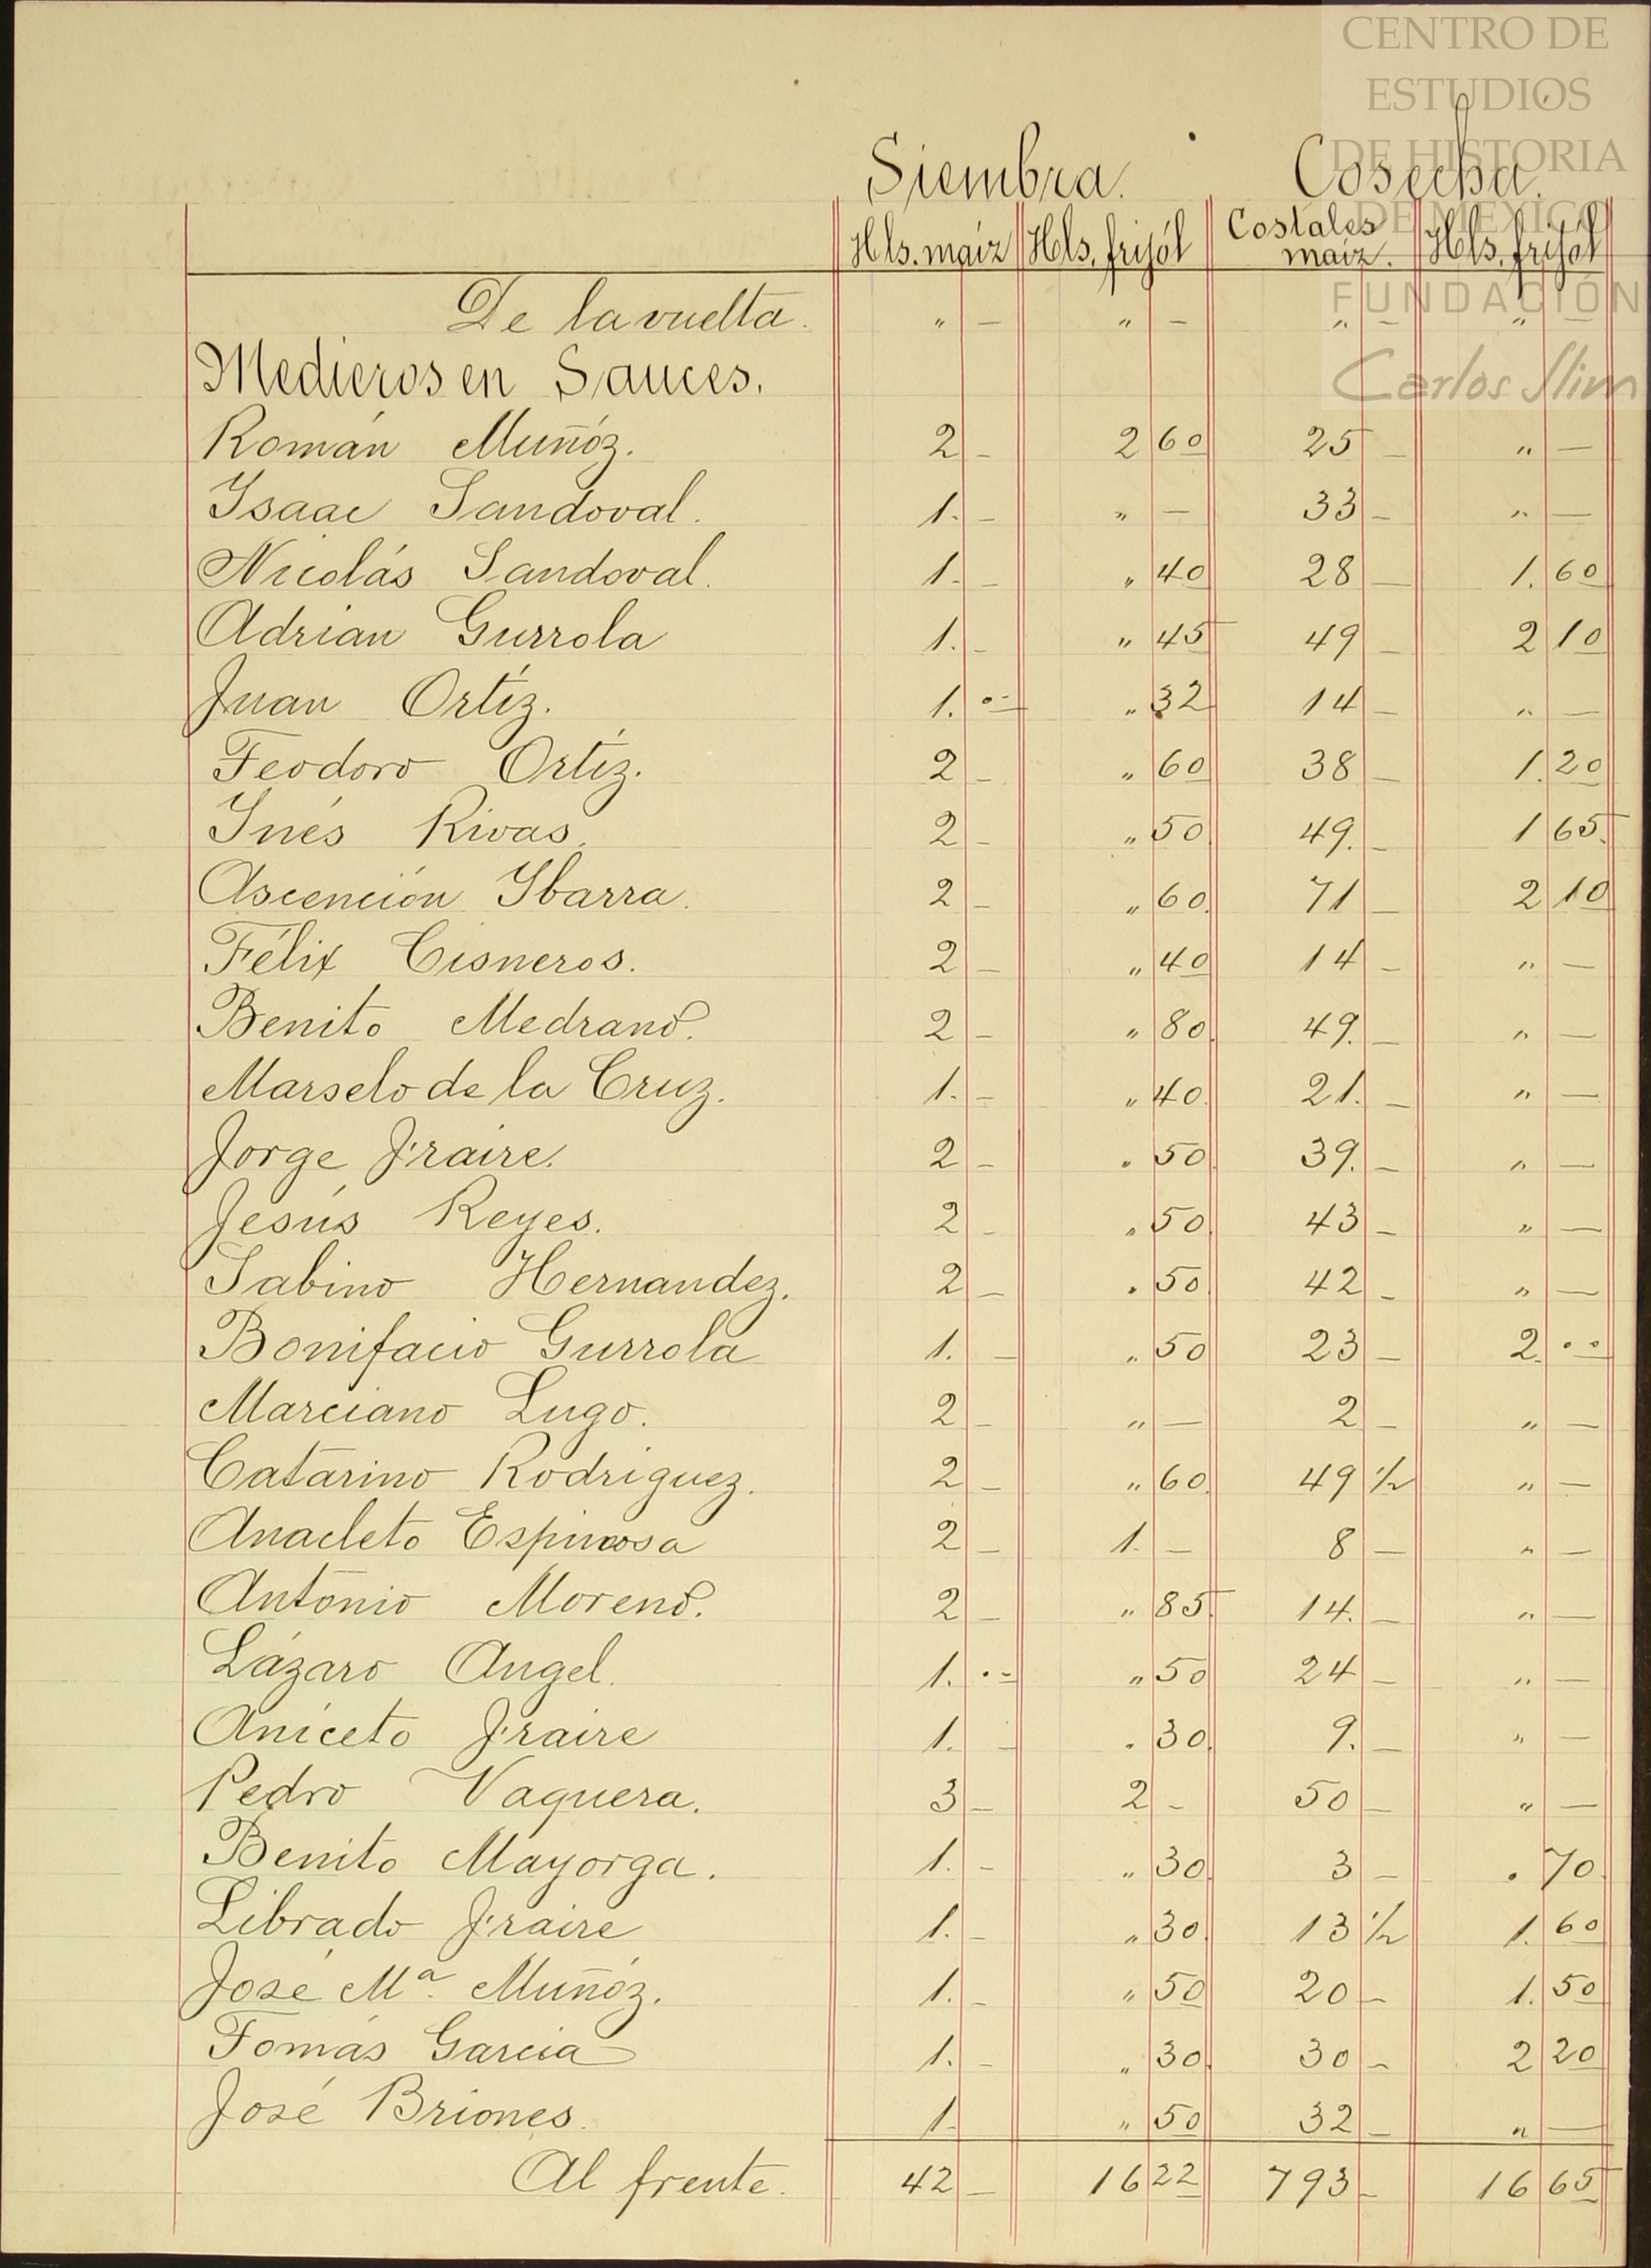 CENTRO DE
ESTUDIOS
DE HISTORIA
DE MÉXICO
FUNDACIÓN
Carlos Slim
Siembra. Cosecha.
Hls. maíz Hls. frijól Costales maíz. Hls. frijól
De la vuelta. „ — „ — „ — „ —
Medieros en Sauces.
Román Muñóz. 2 — 2 60 25 — „ —
Isaac Sandoval. 1. — „ — 33 — „ —
Nicolás Sandoval. 1. — „ 40 28 — 1. 60
Adrian Gurrola 1. — „ 45 49 — 2 10
Juan Ortíz. 1. „ „ 32 14 — „ —
Teodoro Ortíz. 2 — „ 60 38 — 1. 20
Inés Rivas. 2 — „ 50 49. — 1 65.
Ascención Ibarra. 2 — „ 60. 71 — 2 10
Félix Cisneros. 2 — „ 40 14 — „ —
Benito Medrano. 2 — „ 80. 49. — „ —
Marselo de la Cruz. 1. — „ 40. 21. — „ —
Jorge Fraire. 2 — „ 50. 39. — „ —
Jesús Reyes. 2 — „ 50. 43 — „ —
Sabino Hernandez. 2 — „ 50. 42 — „ —
Bonifacio Gurrola 1. — „ 50 23 — 2. „
Marciano Lugo. 2 — „ — 2 — „ —
Catarino Rodriguez. 2 — „ 60. 49 1/2 „ —
Anacleto Espinosa 2 — 1. — 8 — „ —
Antonio Moreno. 2 — „ 85. 14. — „ —
Lázaro Angel. 1. „ „ 50 24 — „ —
Aniceto Fraire 1. — „ 30. 9. — „ —
Pedro Vaquera. 3 — 2 — 50 — „ —
Benito Mayorga. 1. — „ 30. 3 — „ 70.
Librado Fraire 1. — „ 30. 13 1/2 1. 60
José Mª. Muñóz. 1. — „ 50 20 — 1. 50
Tomás Garcia 1. — „ 30. 30 — 2 20
José Briones. 1. „ 50 32 — „ —
Al frente. 42 — 16 22 793 — 16 65